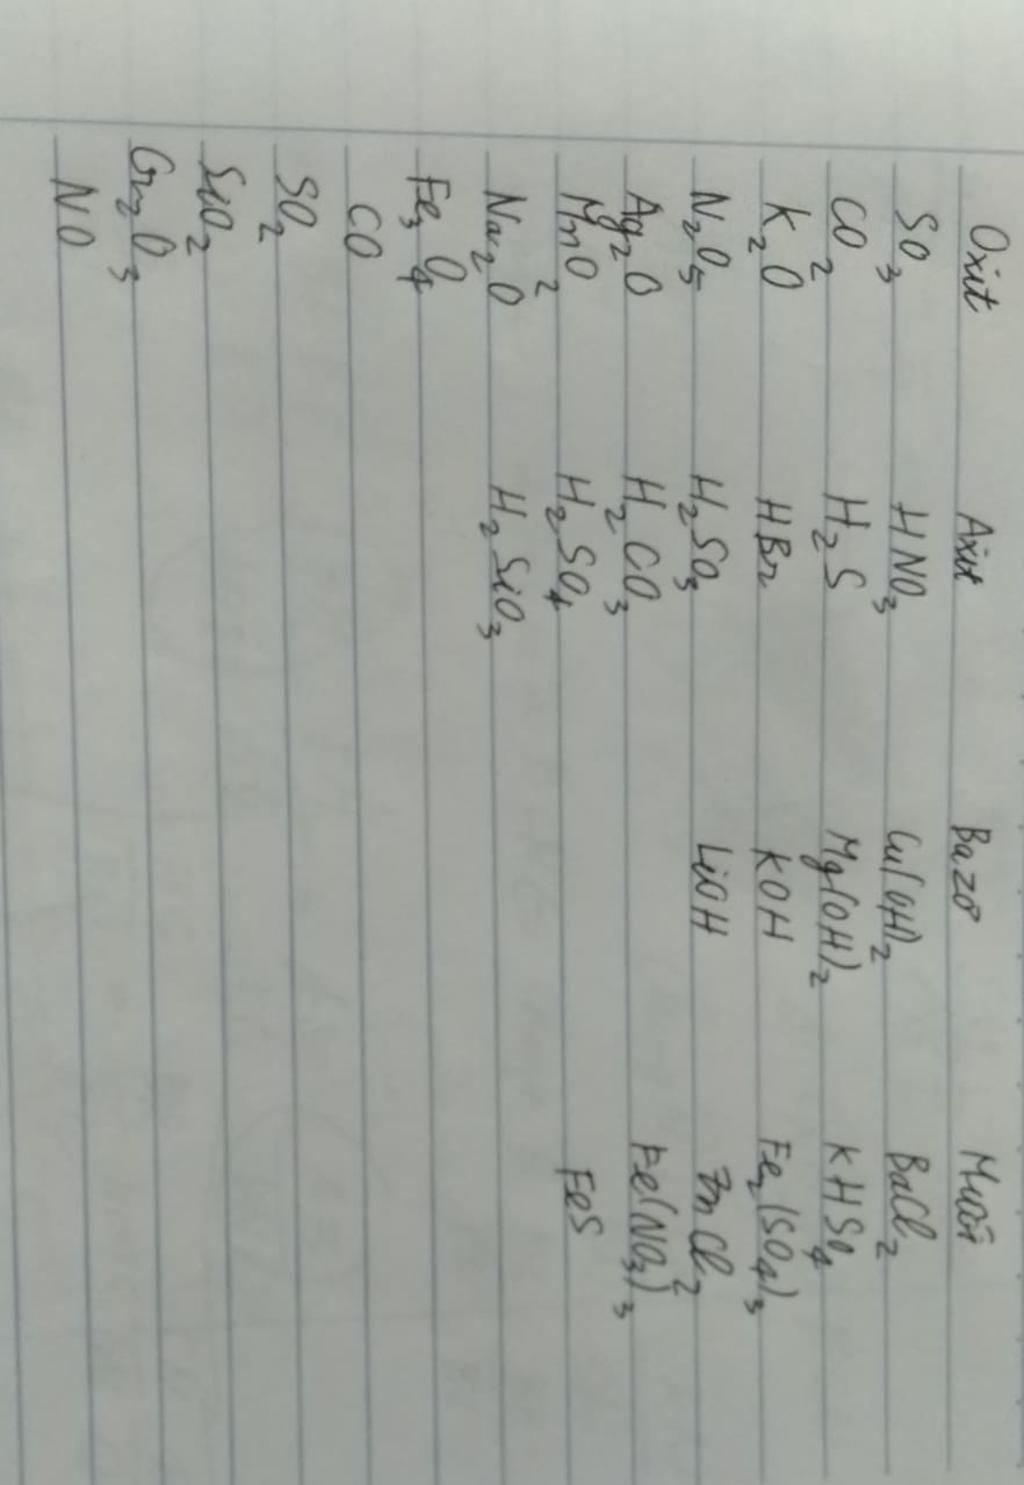 Oxit Axit Bazơ Muối
SO₃ HNO₃ Cu(OH)₂ BaCl₂
CO₂ H₂S Mg(OH)₂ KHSO₄
K₂O HBr KOH Fe₂(SO₄)₃
N₂O₅ H₂SO₃ LiOH ZnCl₂
Ag₂O H₂CO₃ Fe(NO₃)₃
MnO₂ H₂SO₄ FeS
Na₂O H₂SiO₃
Fe₃O₄
CO
SO₂
SiO₂
Cr₂O₃
NO